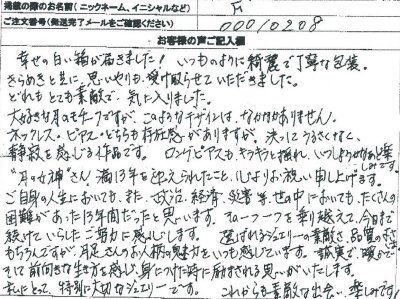 掲載の際のお名前(ニックネーム、イニシャルなど) F
ご注文番号(発送完了メールをご確認ください) 00010208
お客様の声ご記入欄
幸せの白い箱が届きました! いつものように綺麗で丁寧な包装。
きらめきと共に、思いやりも受け取らせていただきました。
どれもとても素敵で、気に入りました。
大好きな月のモチーフですが、このようなデザインは、なかなかありません。
ネックレス・ピアス・どちらも存在感がありますが、決してうるさくなく、
静寂を感じる作品です。 ロングピアスも、キラキラと揺れ、
"月の女神"さん、満13年を迎えられたこと、心よりお祝い申し上げます。
ご自身の人生においても、また、政治、経済、災害等、世の中においても、たくさんの
困難があった13年間だったと思います。 を乗り越えて、今日まで
続けていらしたご努力に感心します。 選ばれるジュエリーの素敵さ、品質の
もちろんですが、 さんのお人柄の魅力をいつも感じています。 誠実で、暖かで
そして前向きな生き方を感じ、身につけた時に励まされる思いがいたします。
私にとって、特別に大切なジュエリーです。 これからも素敵な出会い、楽しみです!